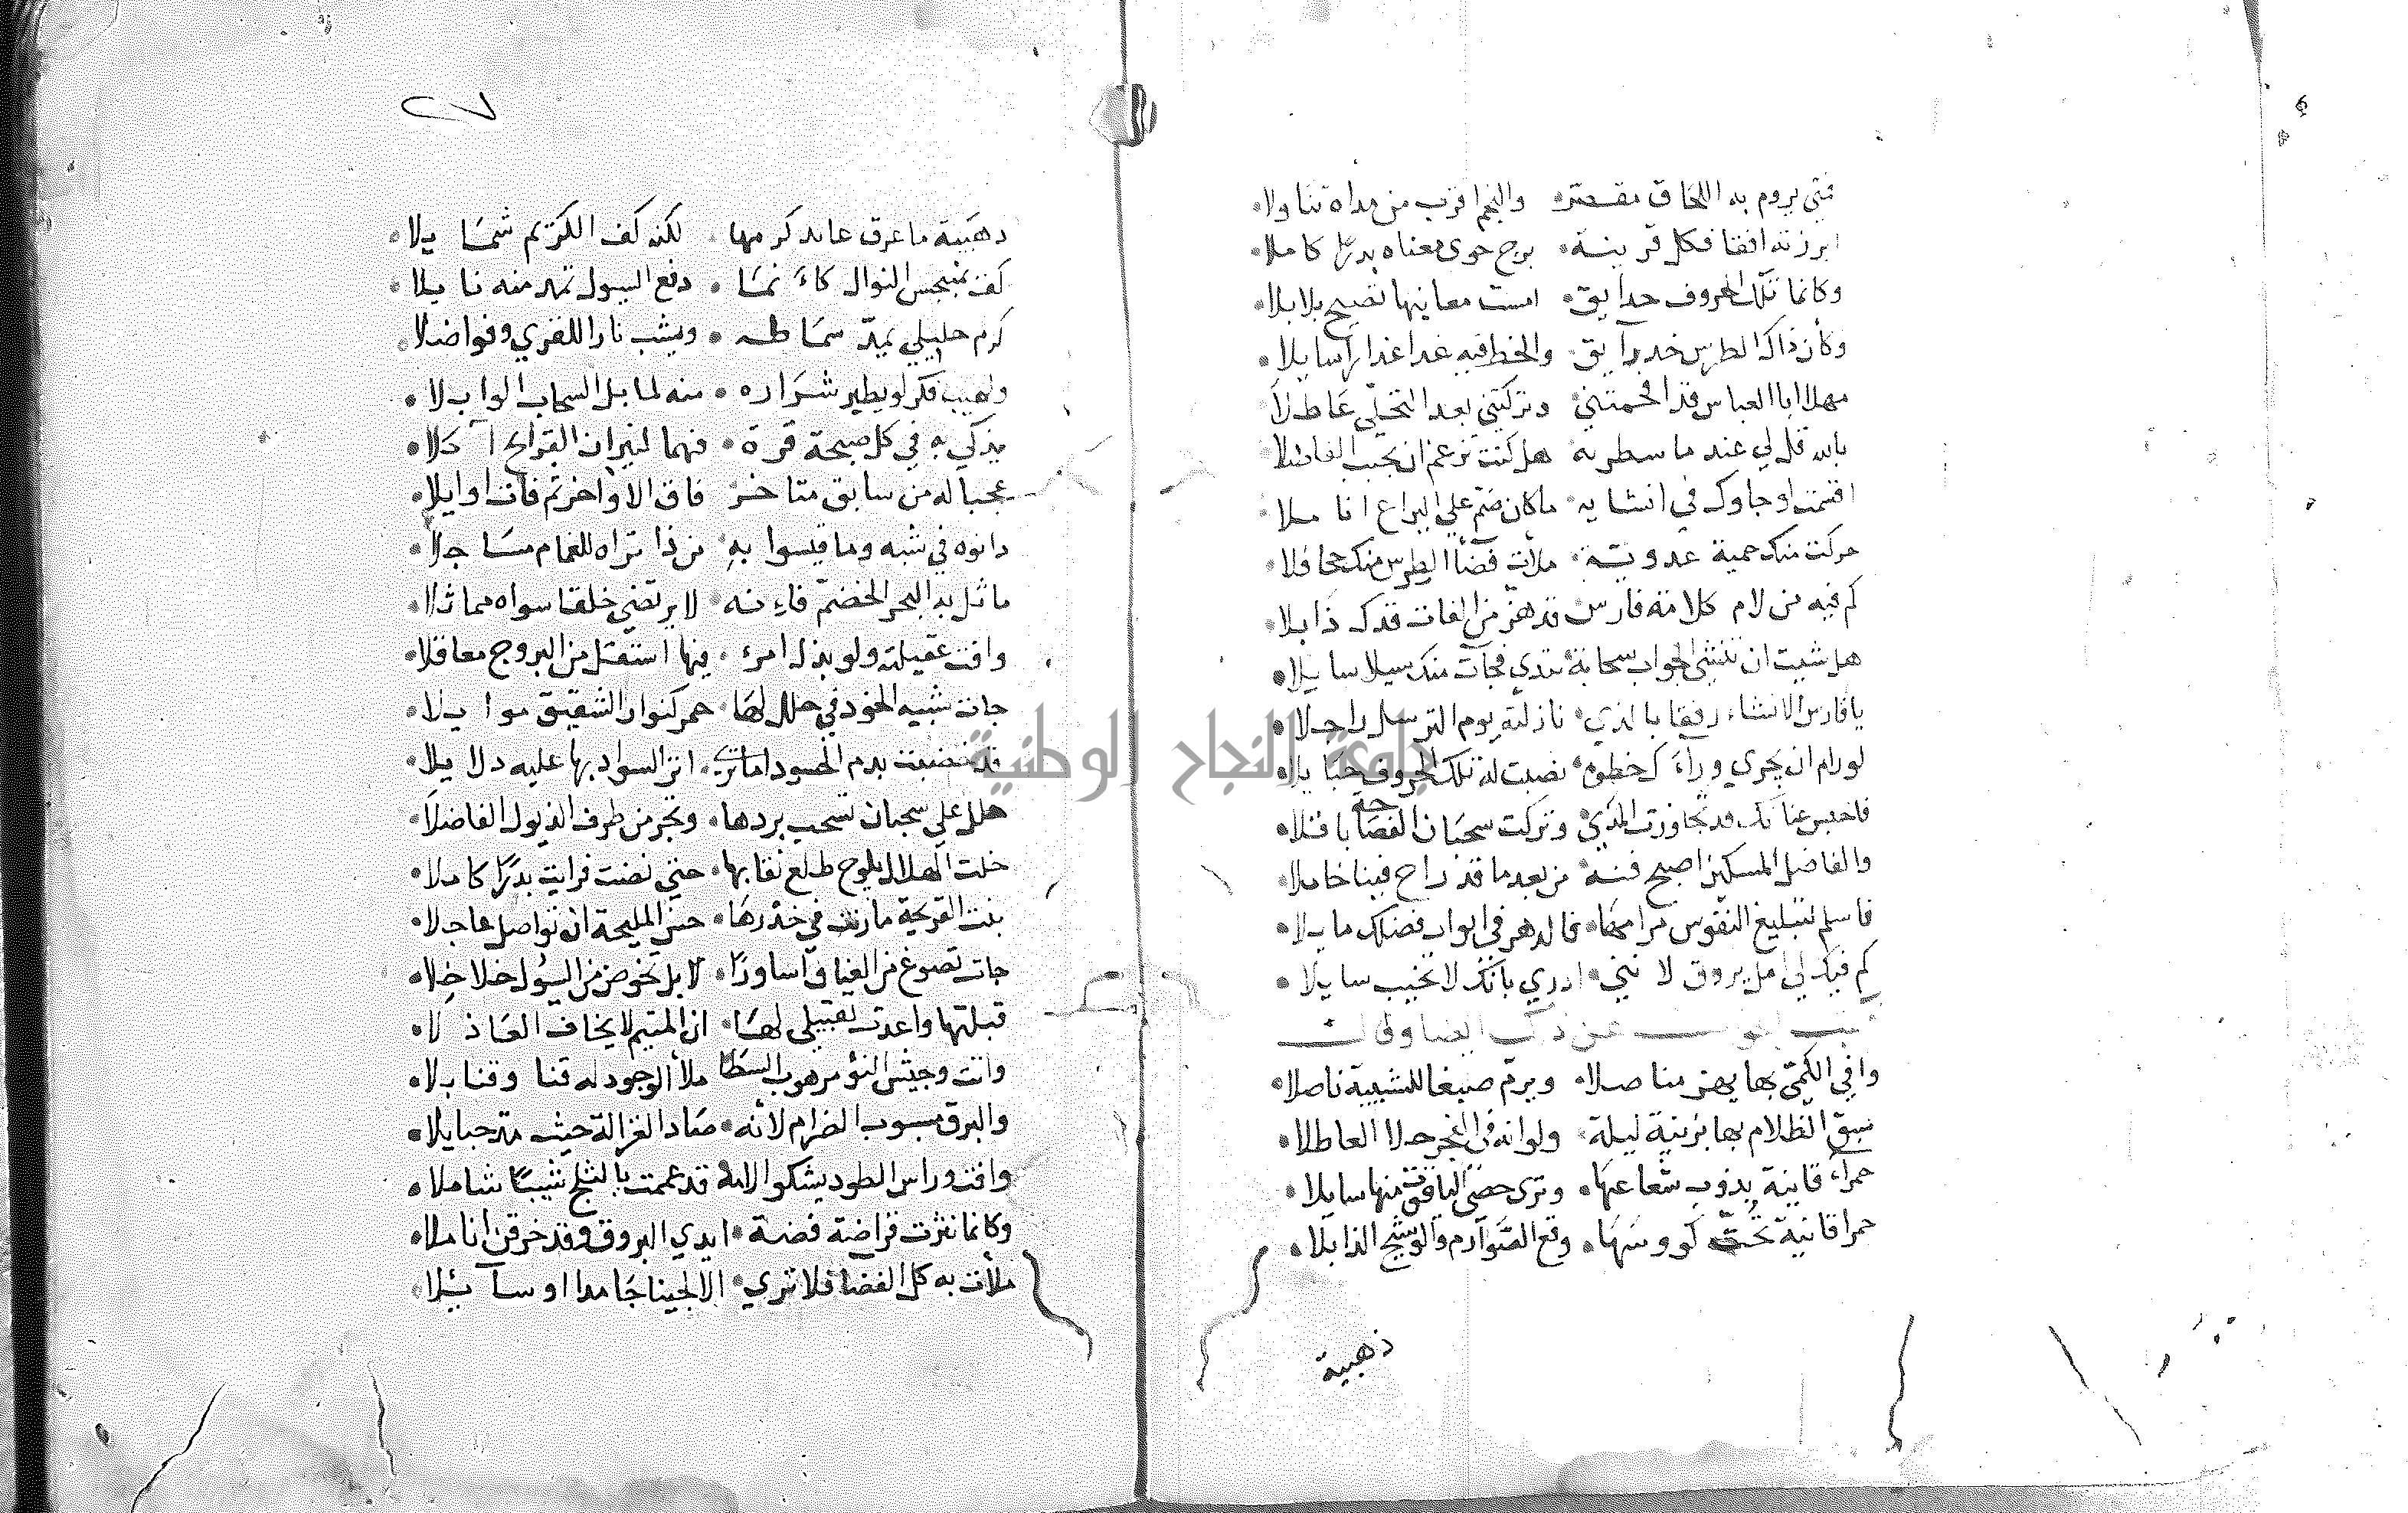 فتي يروم به اللحاق مقصر • والنجم اقرب من مداه تناولا •
ابرزته افقا فكل قرينة • برج حوى معناه بدرًا كاملا •
وكانما تلك الحروف حدايق • امست معانيها تصيح بلابلا •
وكأن ذاك الطرس خد رايق • والخط فيه غدا عذارا سايلا •
مهلا ابا العباس قد افحمتني • وتركتني بعد التحلي عاطلا
بالله قل لي عند ما سطرته • هل كنت تزعم ان تجيب الفاضلا
اقسمت لو جاوك في انشايه • ما كان ضم علي اليراع انا ملا •
حركت منك حمية عدوية • ملأت فضأ الطرس منك جحافلا •
كم فيه من لام كلامة فارس • قد هز من الفات قدك ذابلا •
هل شيت ان تنشي الجواب سحابة • تندي فجآت منك سيلا سايلا •
يا فارس الانشاء رفقا بالذي • نازلته يوم الترسل راجلا •
لو رام ان يجري ورآء ك خطوة • نصبت له تلك الحروف حبايلا •
فاحبس عنانك قد تجاوزت المدي • وتركت سحبان الفصاحة باقلا •
والفاضل المسكين اصبح فنه • من بعد ما قد راح فينا خاملا •
فاسلم لتبليغ النفوس مرامها • فالدهر في ابواب فضلك ما بلا •
كم فيك لي امل يروق لا نني • ادري بانك لا تخيب سايلا •
عن ذلك ايضا وقال
وافي الكمي بها يهز مناصلا • ويرم صبغا للشبيبة ناصلا •
سبق الظلام بها بزينة ليلة • ولو انه في الفجر حلا العاطلا •
حمرآء قانية يذوب شعاعها • وترى حصى الياقوت منها سايلا •
حمرا قانية تحت كووسها • وقع الصوآرم والوشيج الذابلا •
ذهبية
٢٧
ذهبية ما عرق عانه كرمها • لكنه كف الكريم شمايلا •
كف بمنبجس النوال كاء نما • دفع السيول تمد منه نايلا •
كرم خليلي يمد سماطه • ويشب نارا للقري وفواضلا •
ولهيب فكر لو يطير شراره • منه لما بل السحاب الوابلا •
يذكي به في كل صبحة قرة • فهما لنيران القرايح آكلا •
عجبا له من سابق متاخر • فاق الاواخر ثم فات اوايلا •
دانوه في شبه وما قيسوا به • من ذا تراه للغمام مساجلا •
ماثل به البحر الخضم فاءنه • لا يرتضي خلقا سواه مماثلا •
وافت عقيلته ولو بذل امرء • فيها استقل من البروج معاقلا •
جات شبيه الخود في حلل لها • حمر كنوار الشقيق موايلا •
قد خضبت بدم الحسود اما تري • اثر السواد بها عليه دلايلا •
حلل علي سحبان تسحب بردها • وتجر من طرف الذيول الفاضلا •
خلت الهلال يلوح طالع نقابها • حتي نضت فرايت بدرًا كاملا •
بنت القريحة ما ونت في خدرها • حسن المليحة ان تواصل عاجلا •
جات تصوغ من العناق اساورًا • لا بل تخوض من السيول خلاخلا •
قبلتها واعدت تقبيلي لها • ان المتيم لا يخاف العاذلا •
وانت وجيش النؤ مرهوب السطا • ملأ الوجود له قنا وقنابلا •
والبرق مسبوب الضرام لأنه • صاد الغزالة حيث مد حبايلا •
وافت وراس الطود يشكو الامة • قد عممت بالثلج شيبًا شاملا •
وكانما نثرت قراضة فضة • ايدي البروق وقد خرقن اناملا •
ملأت به كل الفضا فلا تري • الا لجينا جامدا او سآئيلا •
جامعة النجاح الوطنية